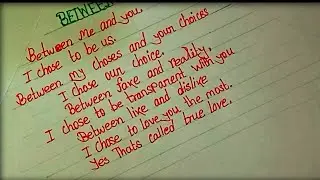 BETWEEN
Between me and you.
I chose to be us.
Between my choses and your choices
I chose our choice.
Between faxe and reality.
I chose to be transparent with you
Between live and dislive
I chose to love you the most.
Yes Thats called true love.